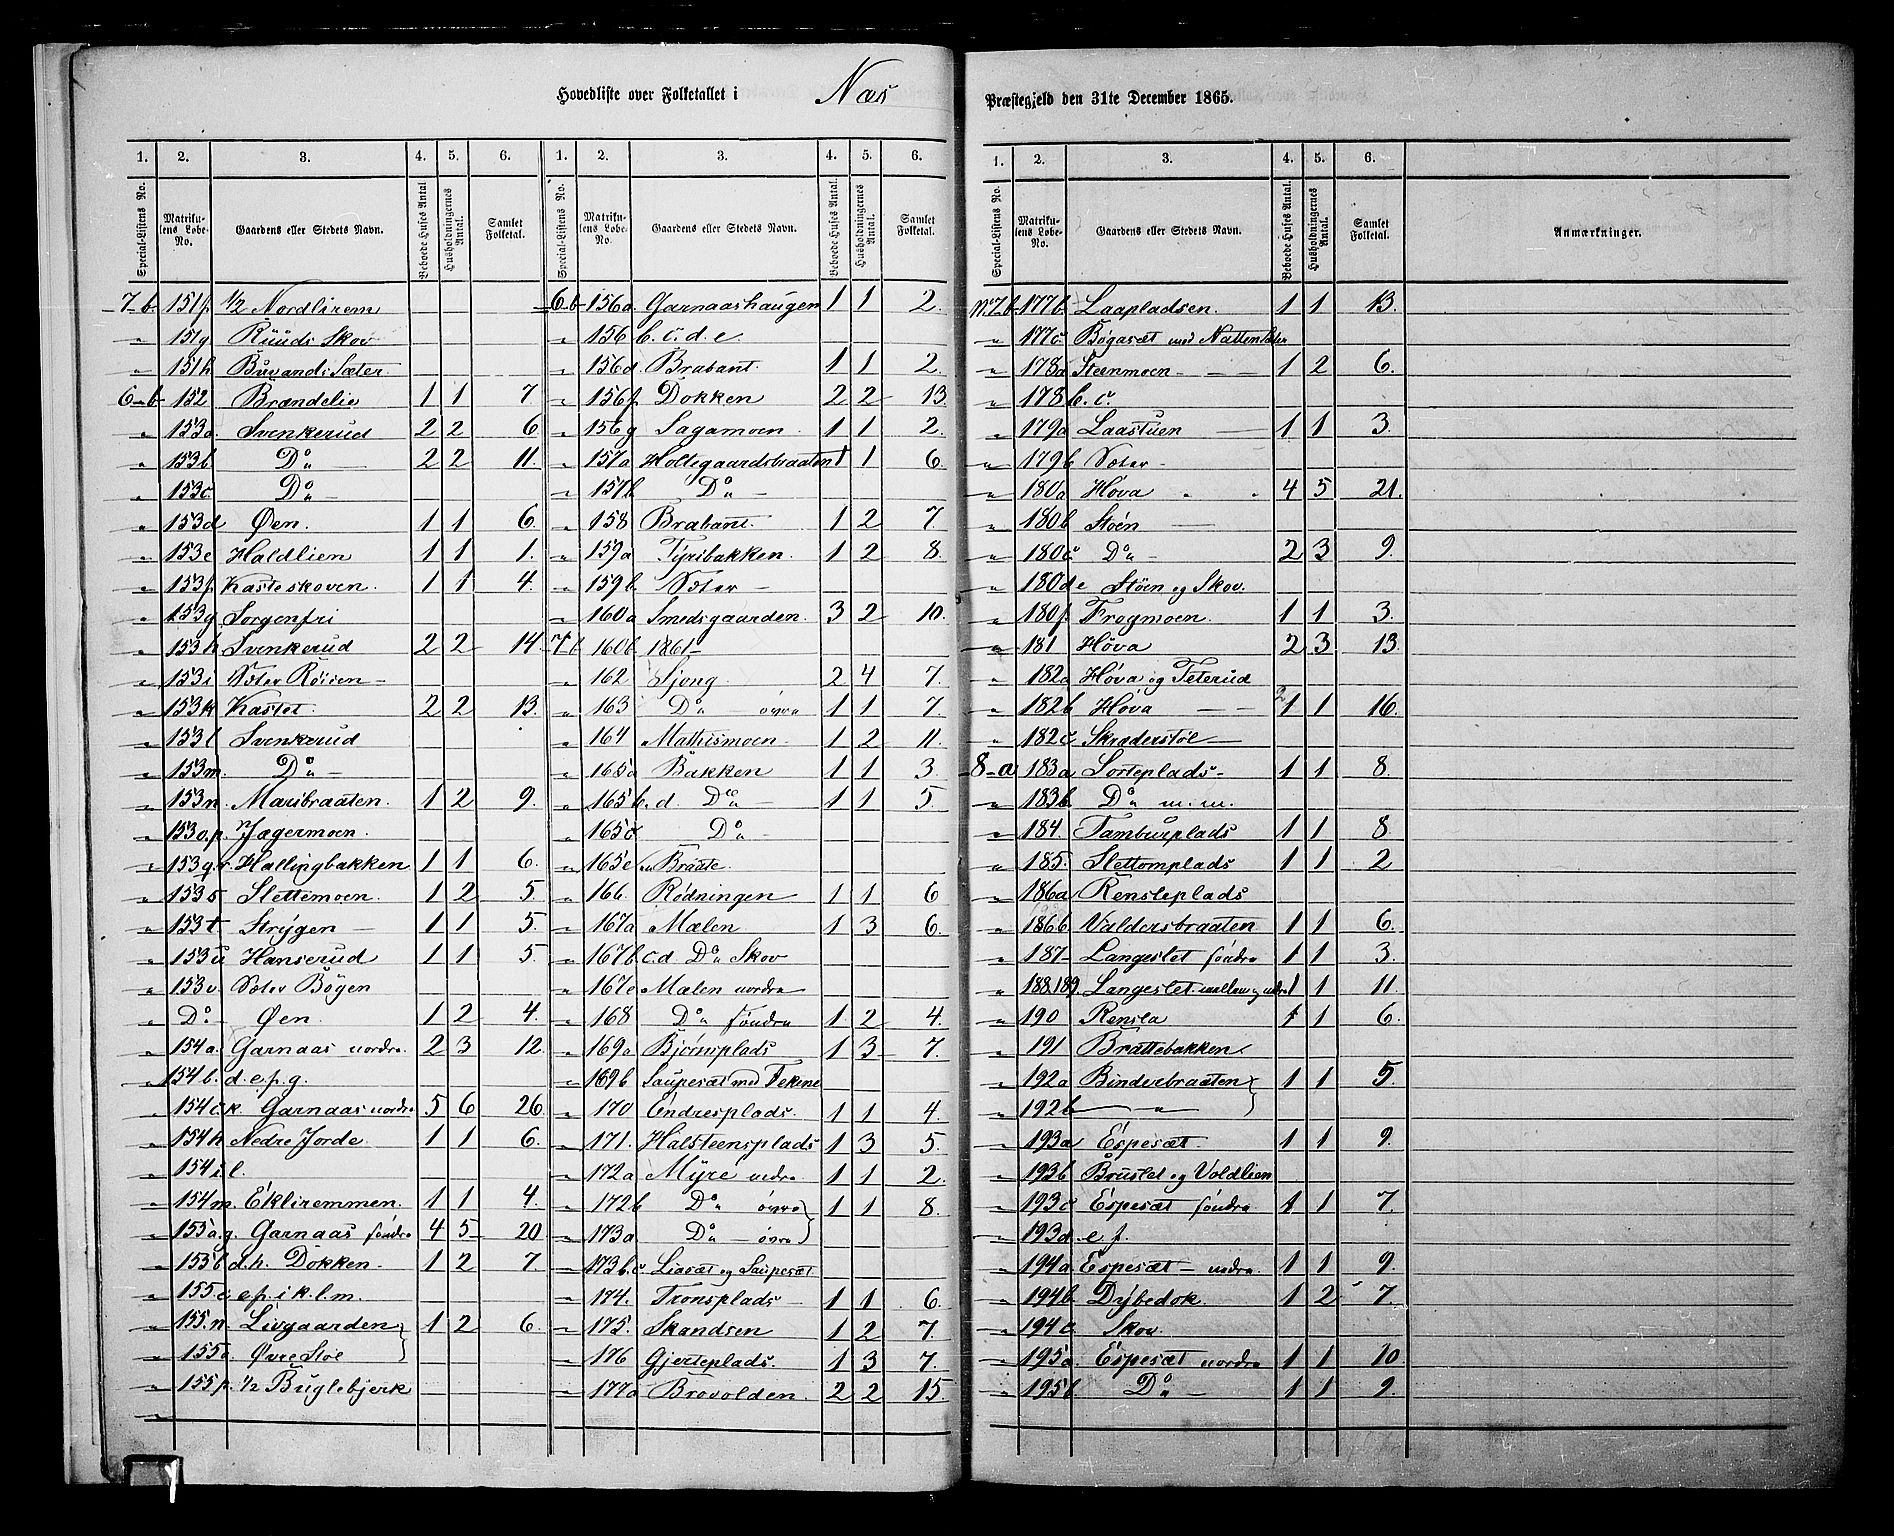 Hovedliste over Folketallet i Næs Præstegjeld den 31te December 1865.
1. 2. 3. 4. 5. 6. 1. 2. 3. 4. 5. 6. 1. 2. 3. 4. 5. 6.
Special-Listens No. Matrikulens Løbe-No. Gaardens eller Stedets Navn. Beboede Huses Antal Husholdningernes Antal. Samlet Folketal. Special-Listens No. Matrikulens Løbe-No. Gaardens eller Stedets Navn. Beboede Huses Antal. Husholdningernes Antal. Samlet Folketal. Special-Listens No. Matrikulens Løbe-No. Gaardens eller Stedets Navn. Beboede Huses Antal. Husholdningernes Antal. Samlet Folketal. Anmærkninger.
7-b 151f ½ Nordlirem
" 151g Ruuds Skov
" 151h Buvandi Sæter
6-b 152 Brændelie 1 1 7
" 153a. Svenkerud 2 2 6
" 153b Do 2 2 11.
" 153c Do
" 153d Øen. 1 1 6.
" 153e Haldlien 1 1 1.
" 153f Kasteskoven. 1 1 4.
" 153g Sorgenfri
" 153h Svenkerud 2 2 14
" 153i Sæter Röisen
" 153k Kastet. 2 2 13.
" 153l Svenkerud
" 153m. Do
" 153n. Maribraaten. 1 2 9.
" 153o.p. Jægermoen.
" 153q.r. Hallingbakken 1 1 6.
" 153s Slettemoen. 1 2 5.
" 153t Strygen 1 1 5.
" 153u Hanserud 1 1 5.
" 153v. Sæter Bögen
" Do Øen. 1 2 4.
" 154a. Garnaas nordre. 2 3 12.
" 154b. d.e.f.g.
" 154c.k. Garnaas nordre 5 6 26
" 154h Nedre Jorde. 1 1 6.
" 154i.l.
" 154m. Ekliremmen. 1 1 4.
" 155a.g. Garnaas söndre 4 5 20
" 155b d.h. Dokken 1 2 7.
" 155c e.f.i.k.l.m.
" 155.n. Livgaarden 1 2 6.
" 155o. Øvre Støl
" 155p. ½ Buglebjerk
6-b 156a. Garnaashaugen 1 1 2.
" 156 b.c.d.e
" 156d. Brabant. 1 1 2.
" 156f Dokken 2 2 13.
" 156g Sagamoen. 1 1 2.
" 157a Holtegaardsbraaten 1 1 6.
" 157b Do
" 158 Brabant. 1 2 7
" 159a Tyribakken. 1 2 8.
" 159b. Sæter
" 160a Smedsgaarden. 3 2 10.
7b 160b 1861
" 162 Sjong. 2 4 7.
" 163 Do övre 1 1 7.
" 164 Mathismoen. 1 2 11.
" 165a Bakken 1 1 3.
" 165b.d. Do 1 1 5
" 165c. Do
" 165e. Braate.
" 166 Rödningen 1 1 6
" 167a Mælen 1 3 6.
" 167b c.d. Do Skov
" 167e Mælen nordre
" 168 Do söndre 1 2 4.
" 169a Bjørnsplads 1 3 7.
" 169b Saupesæt med Tekene
" 170 Endresplads. 1 1 4.
" 171. Halsteensplads 1 3 5.
" 172a Myre nedre. 1 1 2.
" 172b Do övre 1 1 8.
" 173a Do övre
" 173b.c. Liasæt og Saupesæt
" 174. Tronsplads 1 1 6.
" 175. Skandsen 1 2 7.
" 176 Gjerteplads. 1 3 7.
" 177a Brovolden 2 2 15.
No 7b 177b. Laapladsen. 1 1 13.
" 177c. Bögasæt med
" 178a Steenmoen 1 2 6.
" 178b.c.
" 179a Laastuen 1 1 3.
" 179b Sæter
" 180a Höva 4 5 21.
" 180b Stöen
" 180c. Do 2 3 9.
" 180d e Stöen og Skov.
" 180f. Frogmoen. 1 1 3.
" 181 Höva 2 3 13.
" 182a Höva og Teterud
" 182b Höva 1 1 16.
2
" 182c Skræderstøl
8-a 183a Sorteplads 1 1 8.
" 183b. Do m.m.
" 184. Tamburplads 1 1 8
" 185. Slettomplads 1 1 2
" 186a Rensleplads
" 186b Valdersbraaten 1 1 6.
" 187 Langeslet söndre 1 1 3.
" 188.189. Langeslet mellem og nedre 1 1 11.
" 190 Rensla 1 1 6.
" 191 Brattebakken.
" 192a Binderbraaten 1 1 5.
" 192b "
" 193a Espesæt. 1 1 9.
" 193b Bruslet og Voldlien
" 193c Espesæt söndre 1 1 7.
" 193d. e.f.
" 194a. Espesæt nedre. 1 1 9.
" 194b. Dybedok. 1 2 7.
" 194c. Skov.
" 195a. Espesæt nordre 1 1 10.
" 195b. Do 1 1 9.